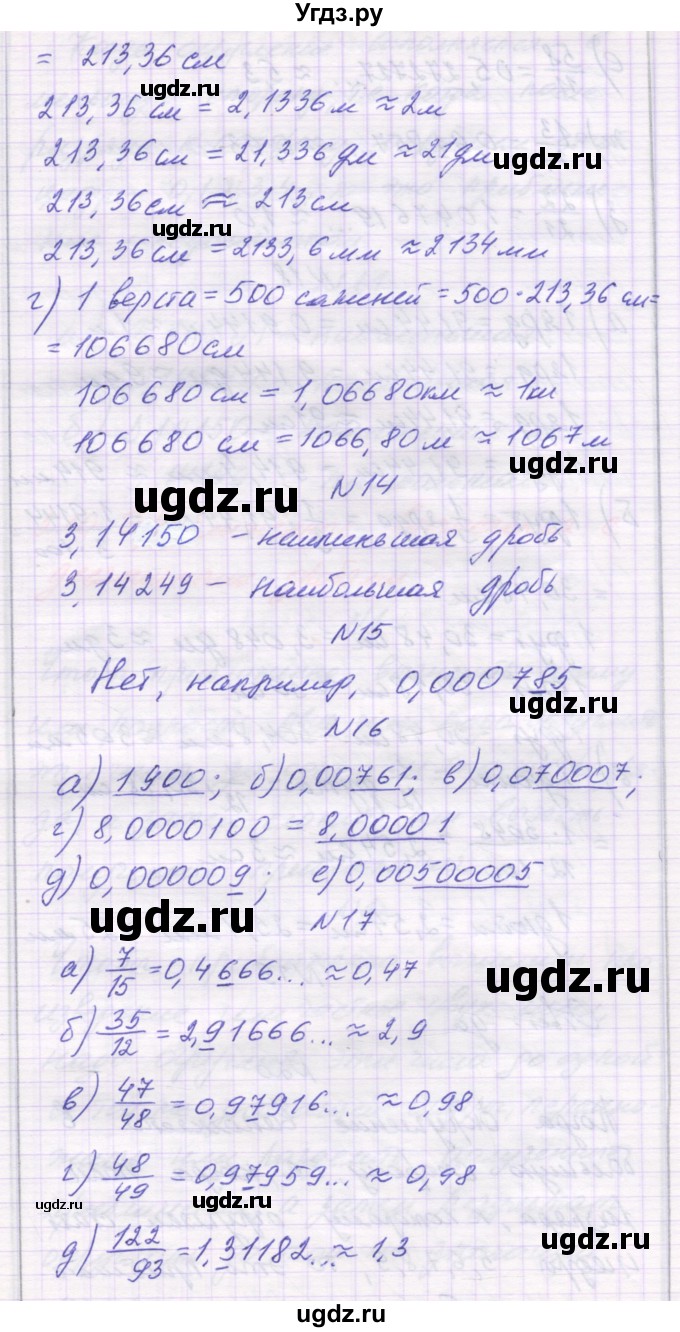 Угдз.ру
= 213,36 см
213,36 см = 2,1336 м ≈ 2 м
213,36 см = 21,336 дм ≈ 21 дм
213,36 см ≈ 213 см
213,36 см = 2133,6 мм ≈ 2134 мм
г) 1 верста = 500 саженей = 500·213,36 см =
= 106680 см
106 680 см = 1,06680 км ≈ 1 км
106 680 см = 1066,80 м ≈ 1067 м
N14
3,14150 – наименьшая дробь
3,14249 – наибольшая дробь
N15
Нет, например, 0,000785
N16
а) 1900; б) 0,00761; в) 0,070007;
г) 8,0000100 = 8,00001
д) 0,000009; е) 0,00500005
N17
а) 7/15 = 0,4666... ≈ 0,47
б) 35/12 = 2,91666... ≈ 2,9
в) 47/48 = 0,97916... ≈ 0,98
г) 48/49 = 0,97959... ≈ 0,98
д) 122/93 = 1,31182... ≈ 1,3
ugdz.ru
ugdz.ru
ugdz.ru
ugdz.ru
ugdz.ru
ugdz.ru
ugdz.ru
ugdz.ru
ugdz.ru
ugdz.ru
ugdz.ru
ugdz.ru